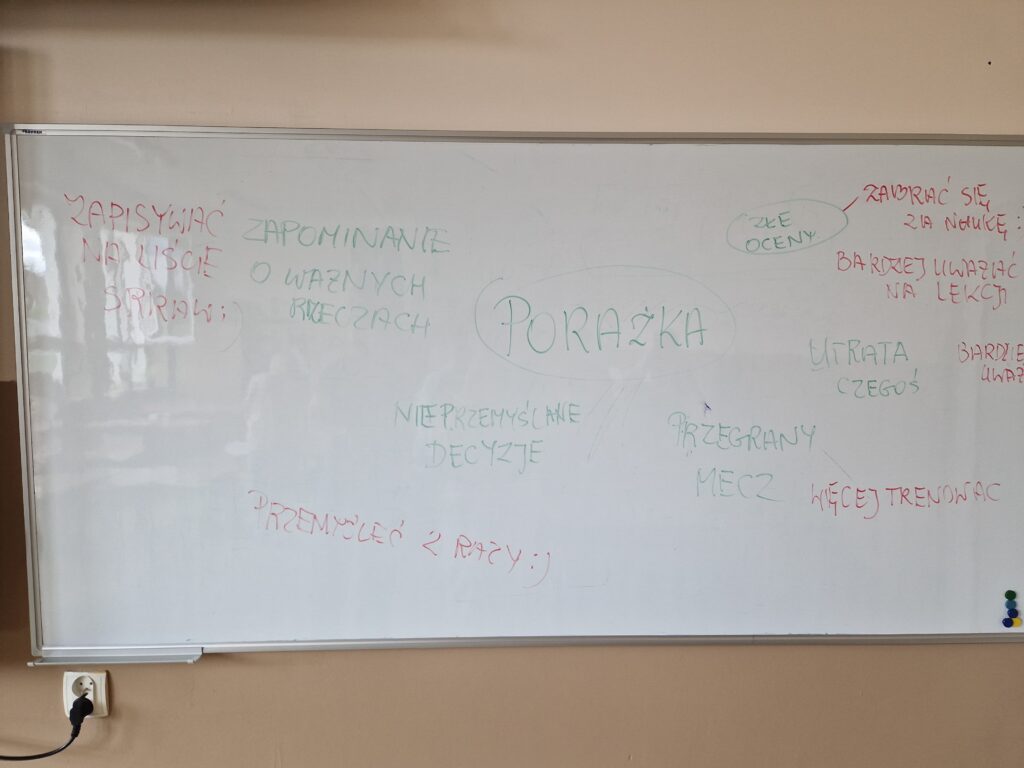 ZAPISYWAĆ
NA LIŚCIE
SPRAW :)
ZAPOMINANIE
O WAŻNYCH
RZECZACH
PORAŻKA
ZŁE
OCENY
ZABRAĆ SIĘ
ZA NAUKĘ :
BARDZIEJ UWAŻAĆ
NA LEKCJI
UTRATA
CZEGOŚ
BARDZIE
UWAŻ
NIEPRZEMYŚLANE
DECYZJE
PRZEGRANY
MECZ
WIĘCEJ TRENOWAC
PRZEMYŚLEĆ 2 RAZY :)